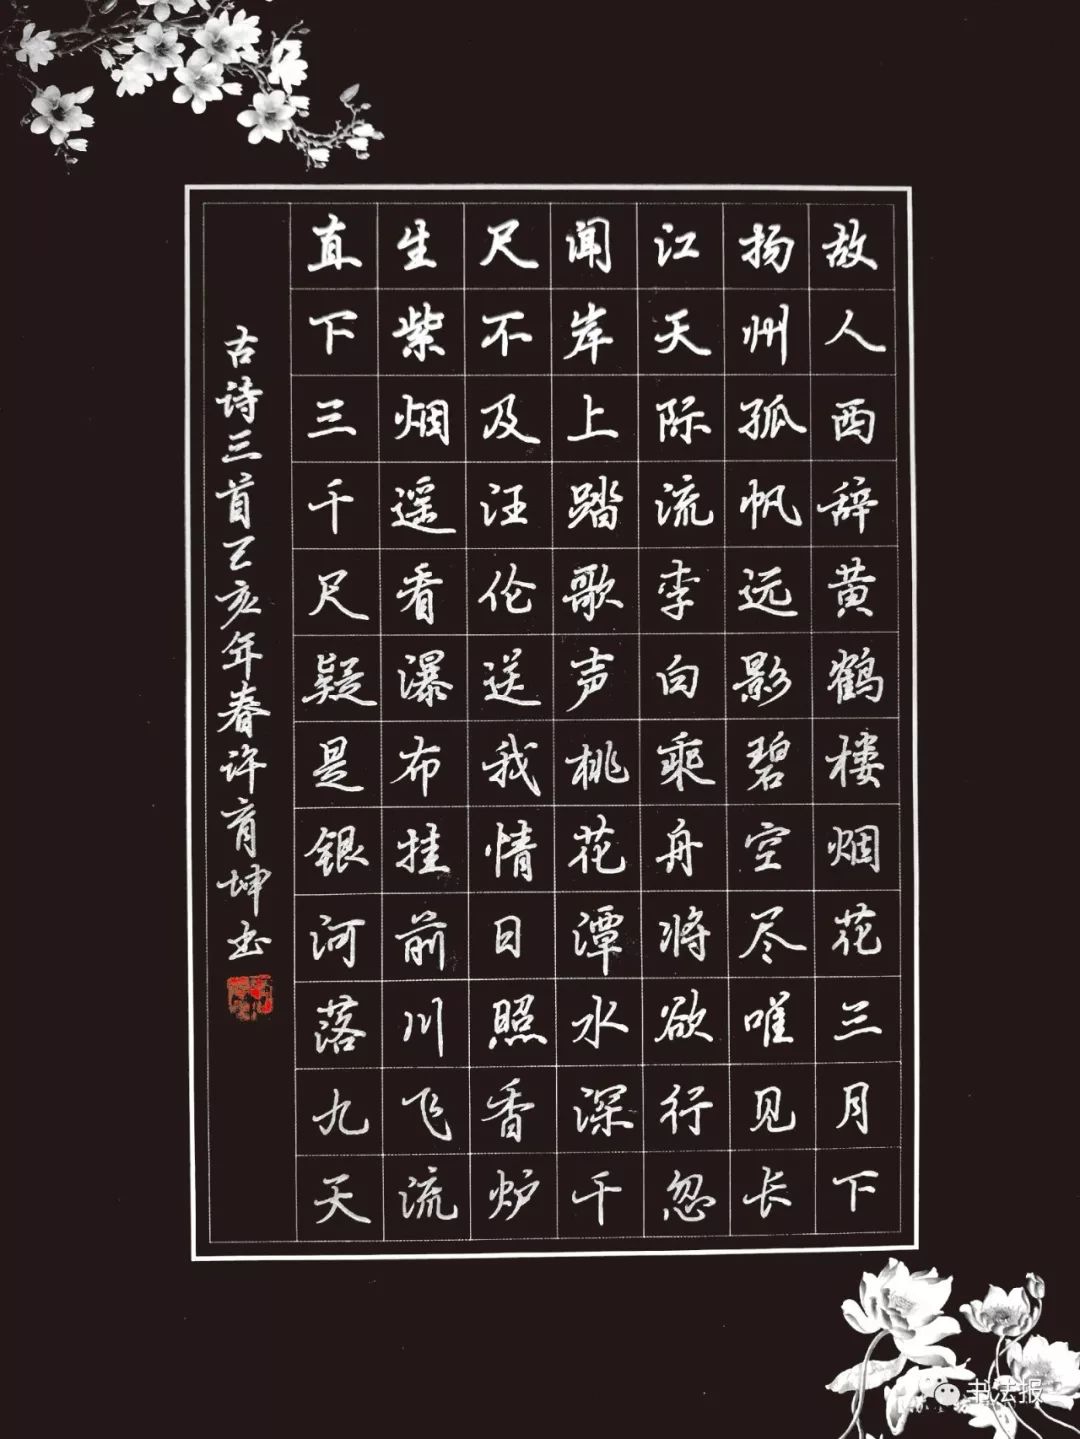 故人西辞黄鹤楼烟花三月下
扬州孤帆远影碧空尽唯见长
江天际流李白乘舟将欲行忽
闻岸上踏歌声桃花潭水深千
尺不及汪伦送我情日照香炉
生紫烟遥看瀑布挂前川飞流
直下三千尺疑是银河落九天
古诗三首己亥年春许育坤书
书法报